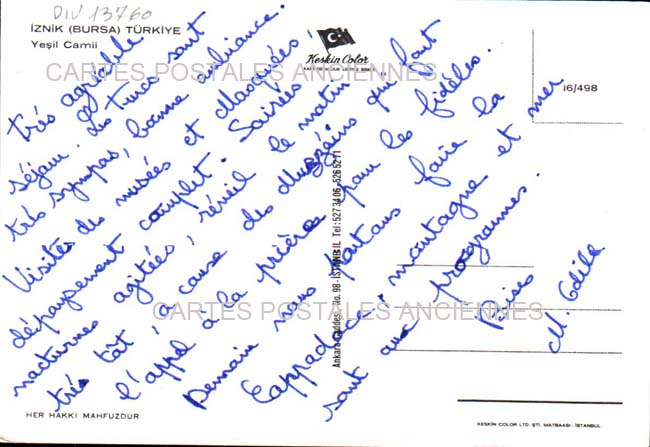 DIV 13760
İZNİK (BURSA) TÜRKİYE
Yeşil Camii
Keskin Color
16/498
CARTES POSTALES ANCIENNES
très agréable
séjour. Les turcs sont
très sympas, bonne ambiance.
Visites des musées et Mosquées,
dépaysement complet. Soirées
nocturnes agitées, réveil le matin
très tôt, à cause des Muezzins qui font
l'appel à la prière pour les fidèles.
Demain nous partons faire la
Cappadoce, montagne et mer
sont au programme.
Bises
M. Odile
CARTES POSTALES ANCIENNES
Ankara Caddesi No. 98-İSTANBUL Tel: 527 34 06 - 526 52 71
HER HAKKI MAHFUZDUR
KESKİN COLOR LTD. ŞTİ. MATBAASI - İSTANBUL